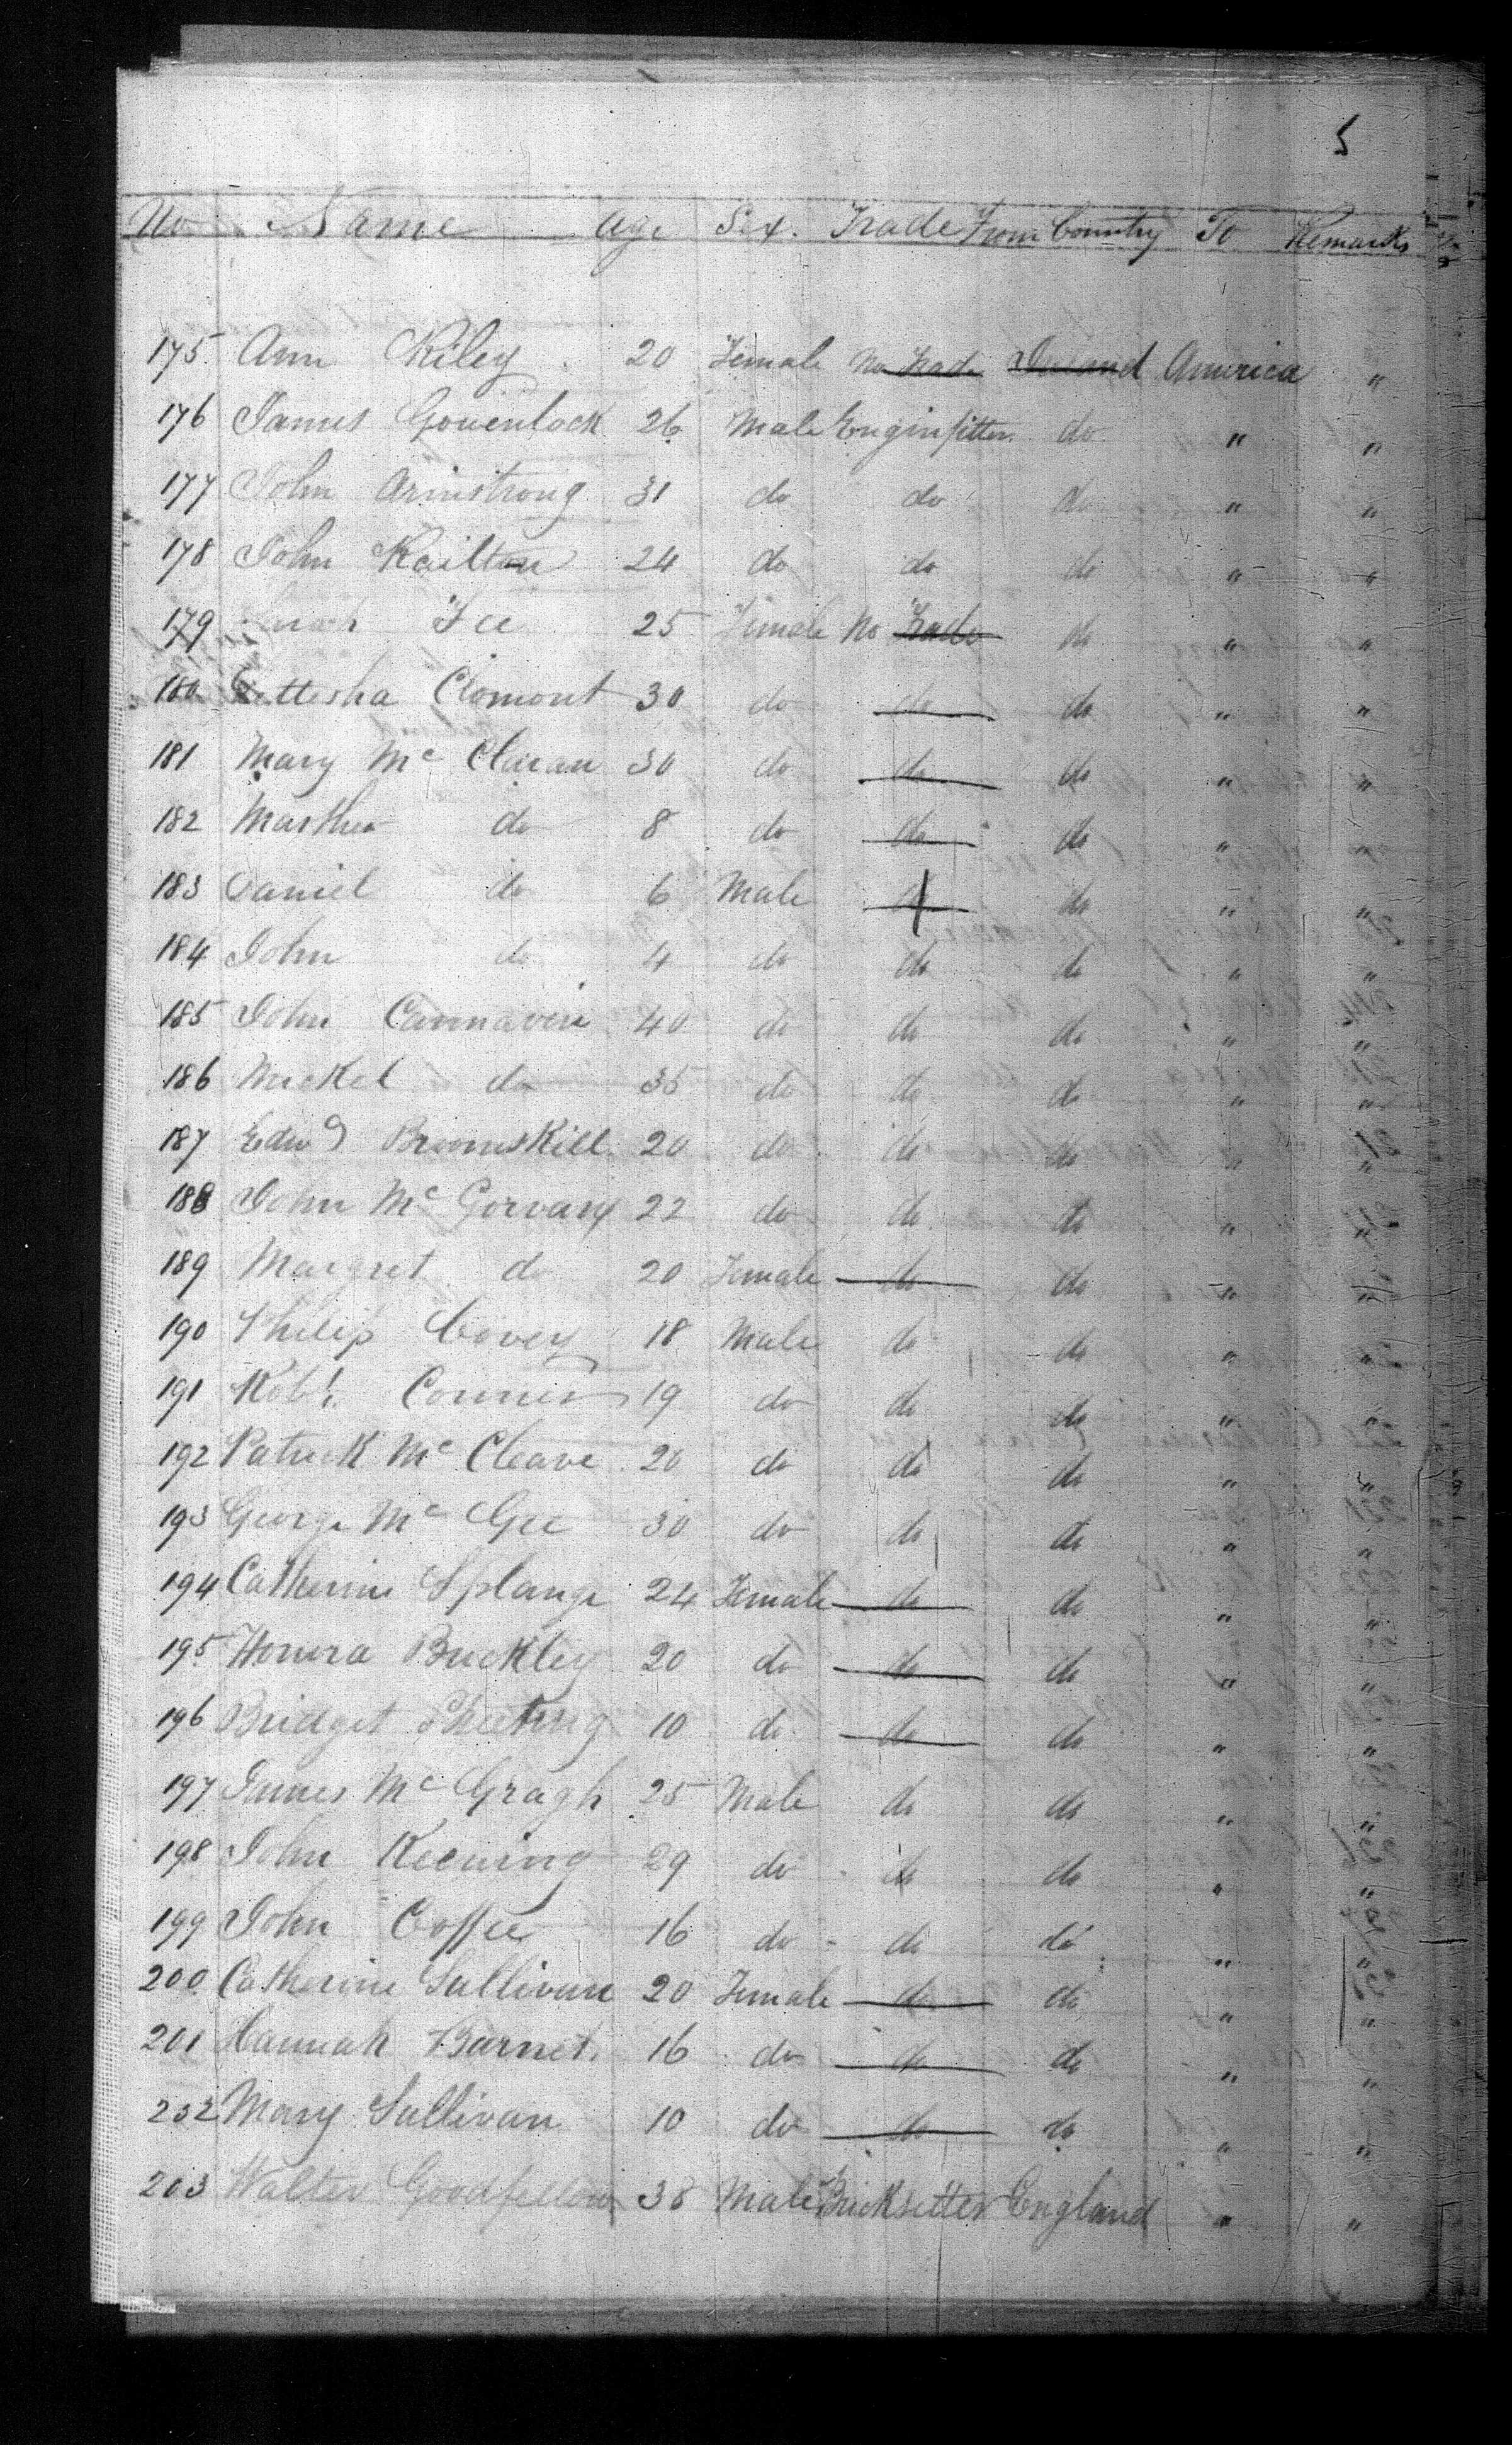 5
No Name Age Sex. Trade From Country To Remarks
175 Ann Riley 20 Female No Trade Ireland America "
176 James Gouenlock 26 Male Enginfitter do " "
177 John Armstrong 31 do do do " "
178 John Railton 24 do do do " "
179 Fee 25 Female No Trade do " "
180 Clomont 30 do do do " "
181 Mary Mc Claran 30 do do do " "
182 Marther do 8 do do do " "
183 Daniel do 6 Male do do " "
184 John do 4 do do do " "
185 John Cannaven 40 do do do " "
186 Mickel do 35 do do do " "
187 Edwd Broomskill 20 do do do " "
188 John Mc Gorvary 22 do do do " "
189 Margret do 20 Female do do " "
190 Philip Covey 18 Male do do " "
191 Robt. Conner 19 do do do " "
192 Patrick Mc Cleave 20 do do do " "
193 George Mc Gee 30 do do do " "
194 Catherine Splange 24 Female do do " "
195 Honora Buckley 20 do do do " "
196 Bridget 10 do do do " "
197 James Mc Gragh 25 Male do do " "
198 John Keewing 29 do do do " "
199 John Coffee 16 do do do " "
200 Catherine Sullivan 20 Female do do " "
201 Hannah Barnet. 16 do do do " "
202 Mary Sullivan 10 do do do " "
203 Walter Goodfellow 38 Male Bricksetter England " "